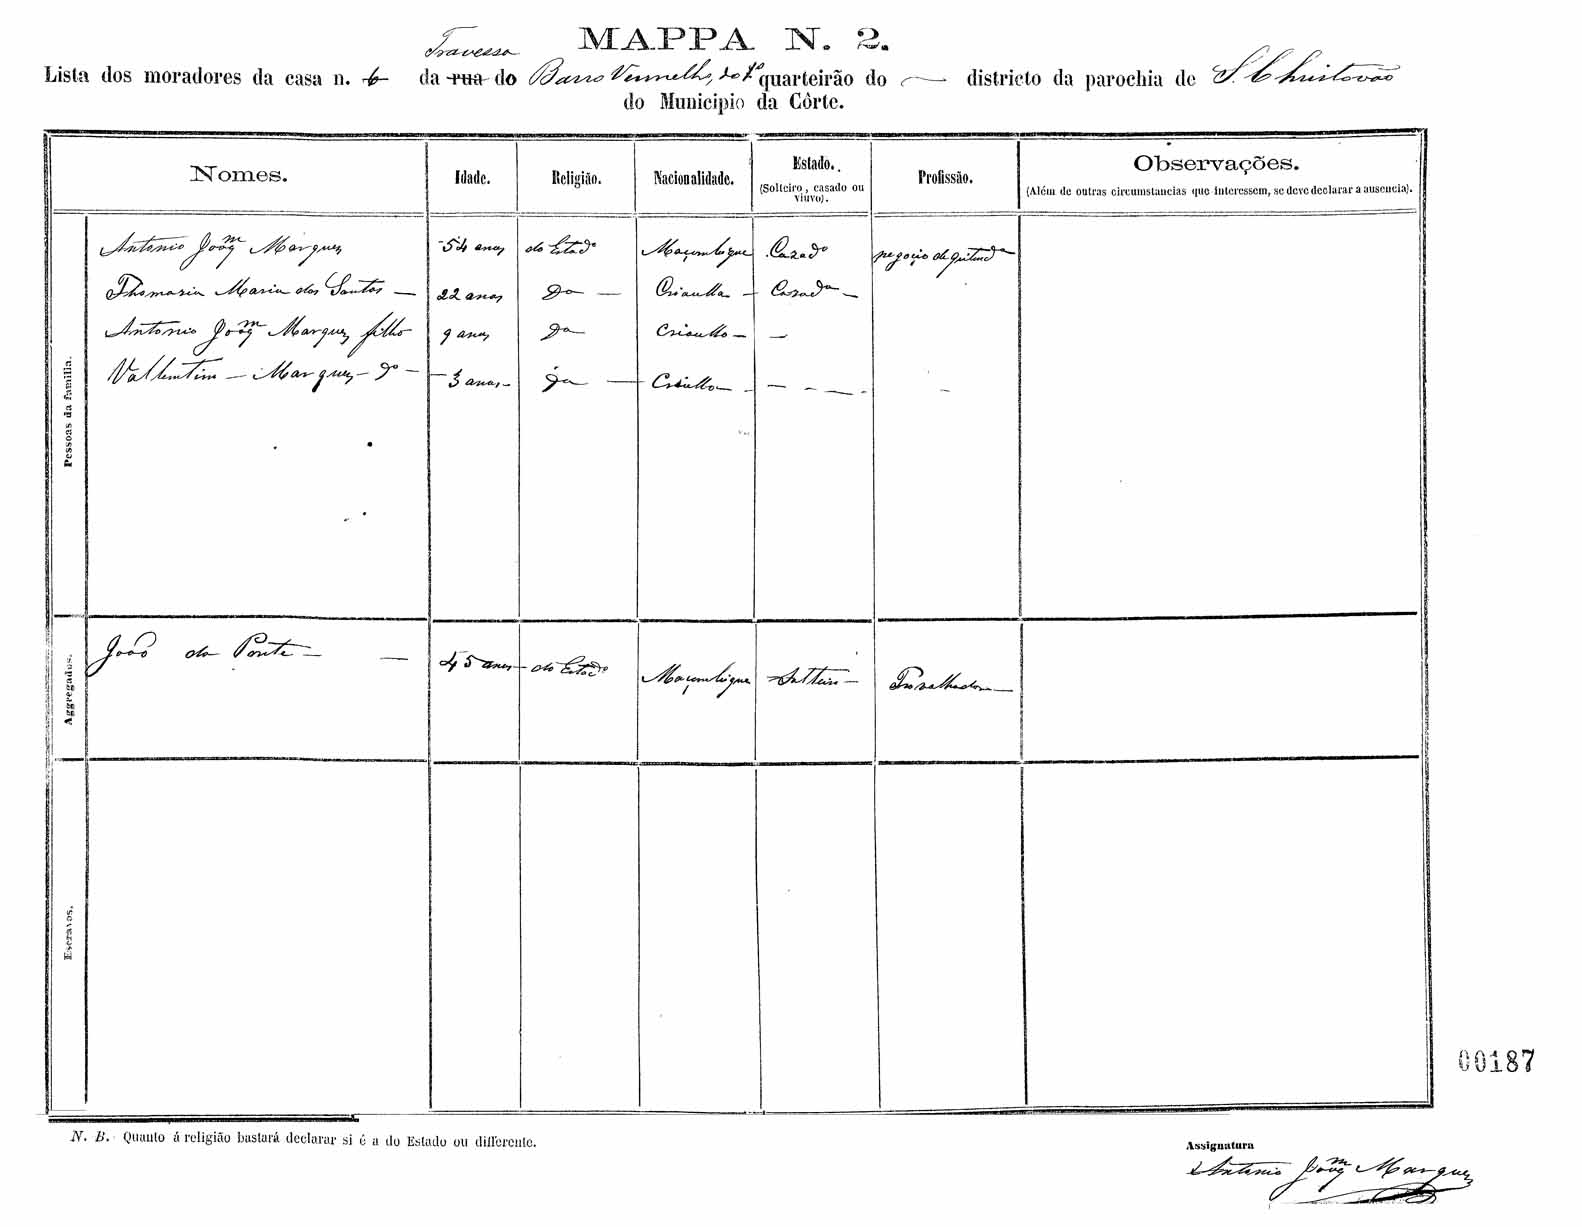 MAPPA N. 2.
Travessa
Lista dos moradores da casa n. 6 da rua do Barro Vermelho, do 1º quarteirão do — districto da parochia de S. Christovão
do Municipio da Côrte.
Nomes. Idade. Religião. Nacionalidade. Estado. (Solteiro, casado ou viuvo). Profissão. Observações. (Além de outras circumstancias que interessem, se deve declarar a ausencia).
Pessoas da familia.
Antonio Joaqm Marques 54 anos do Estado Maçambique Cazado negocio de quitanda
Thomazia Maria dos Santos — 22 anos Do — Crioulla — Cazada —
Antonio Joaqm Marques filho 9 anos Do Crioullo — —
Vallentim — Marques — Do — 3 anos — Do — Crioullo — — — —
Aggregados.
João da Ponte — — 45 anos — do Estado Maçambique Solteiro — Trabalhador —
Escravos.
00187
N. B. Quanto á religião bastará declarar si é a do Estado ou differente.
Assignatura
Antonio Joaqm Marques